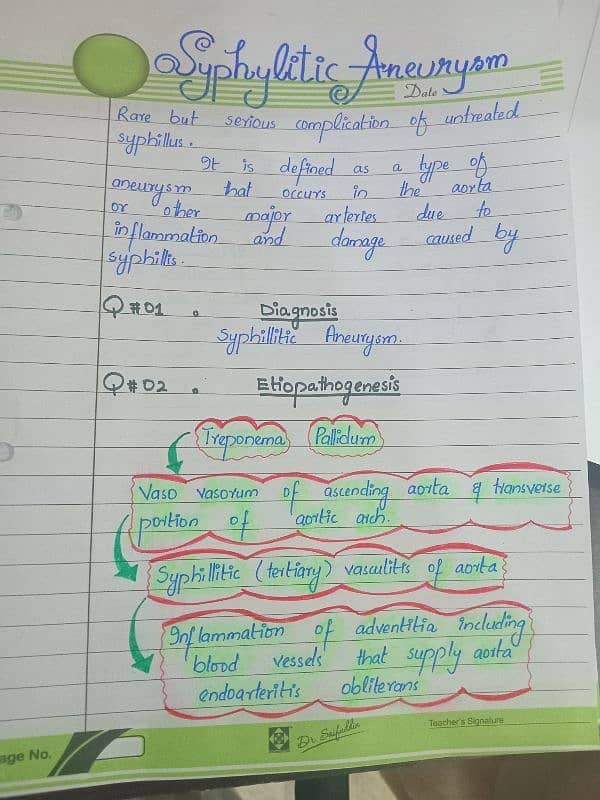 Syphylitic Aneurysm
Date
Rare but serious complication of untreated
syphillus.
It is defined as a type of
aneurysm that occurs in the aorta
or other major arteries due to
inflammation and damage caused by
syphillis.
Q#01 . Diagnosis
Syphillitic Aneurysm.
Q#02 . Etiopathogenesis
Treponema Pallidum
Vaso vasorum of ascending aorta & transverse
portion of aortic arch.
Syphillitic (tertiary) vasculitis of aorta
Inflammation of adventitia including
blood vessels that supply aorta
endoarteritis obliterans
Teacher's Signature
Dr Saifuddin
age No.